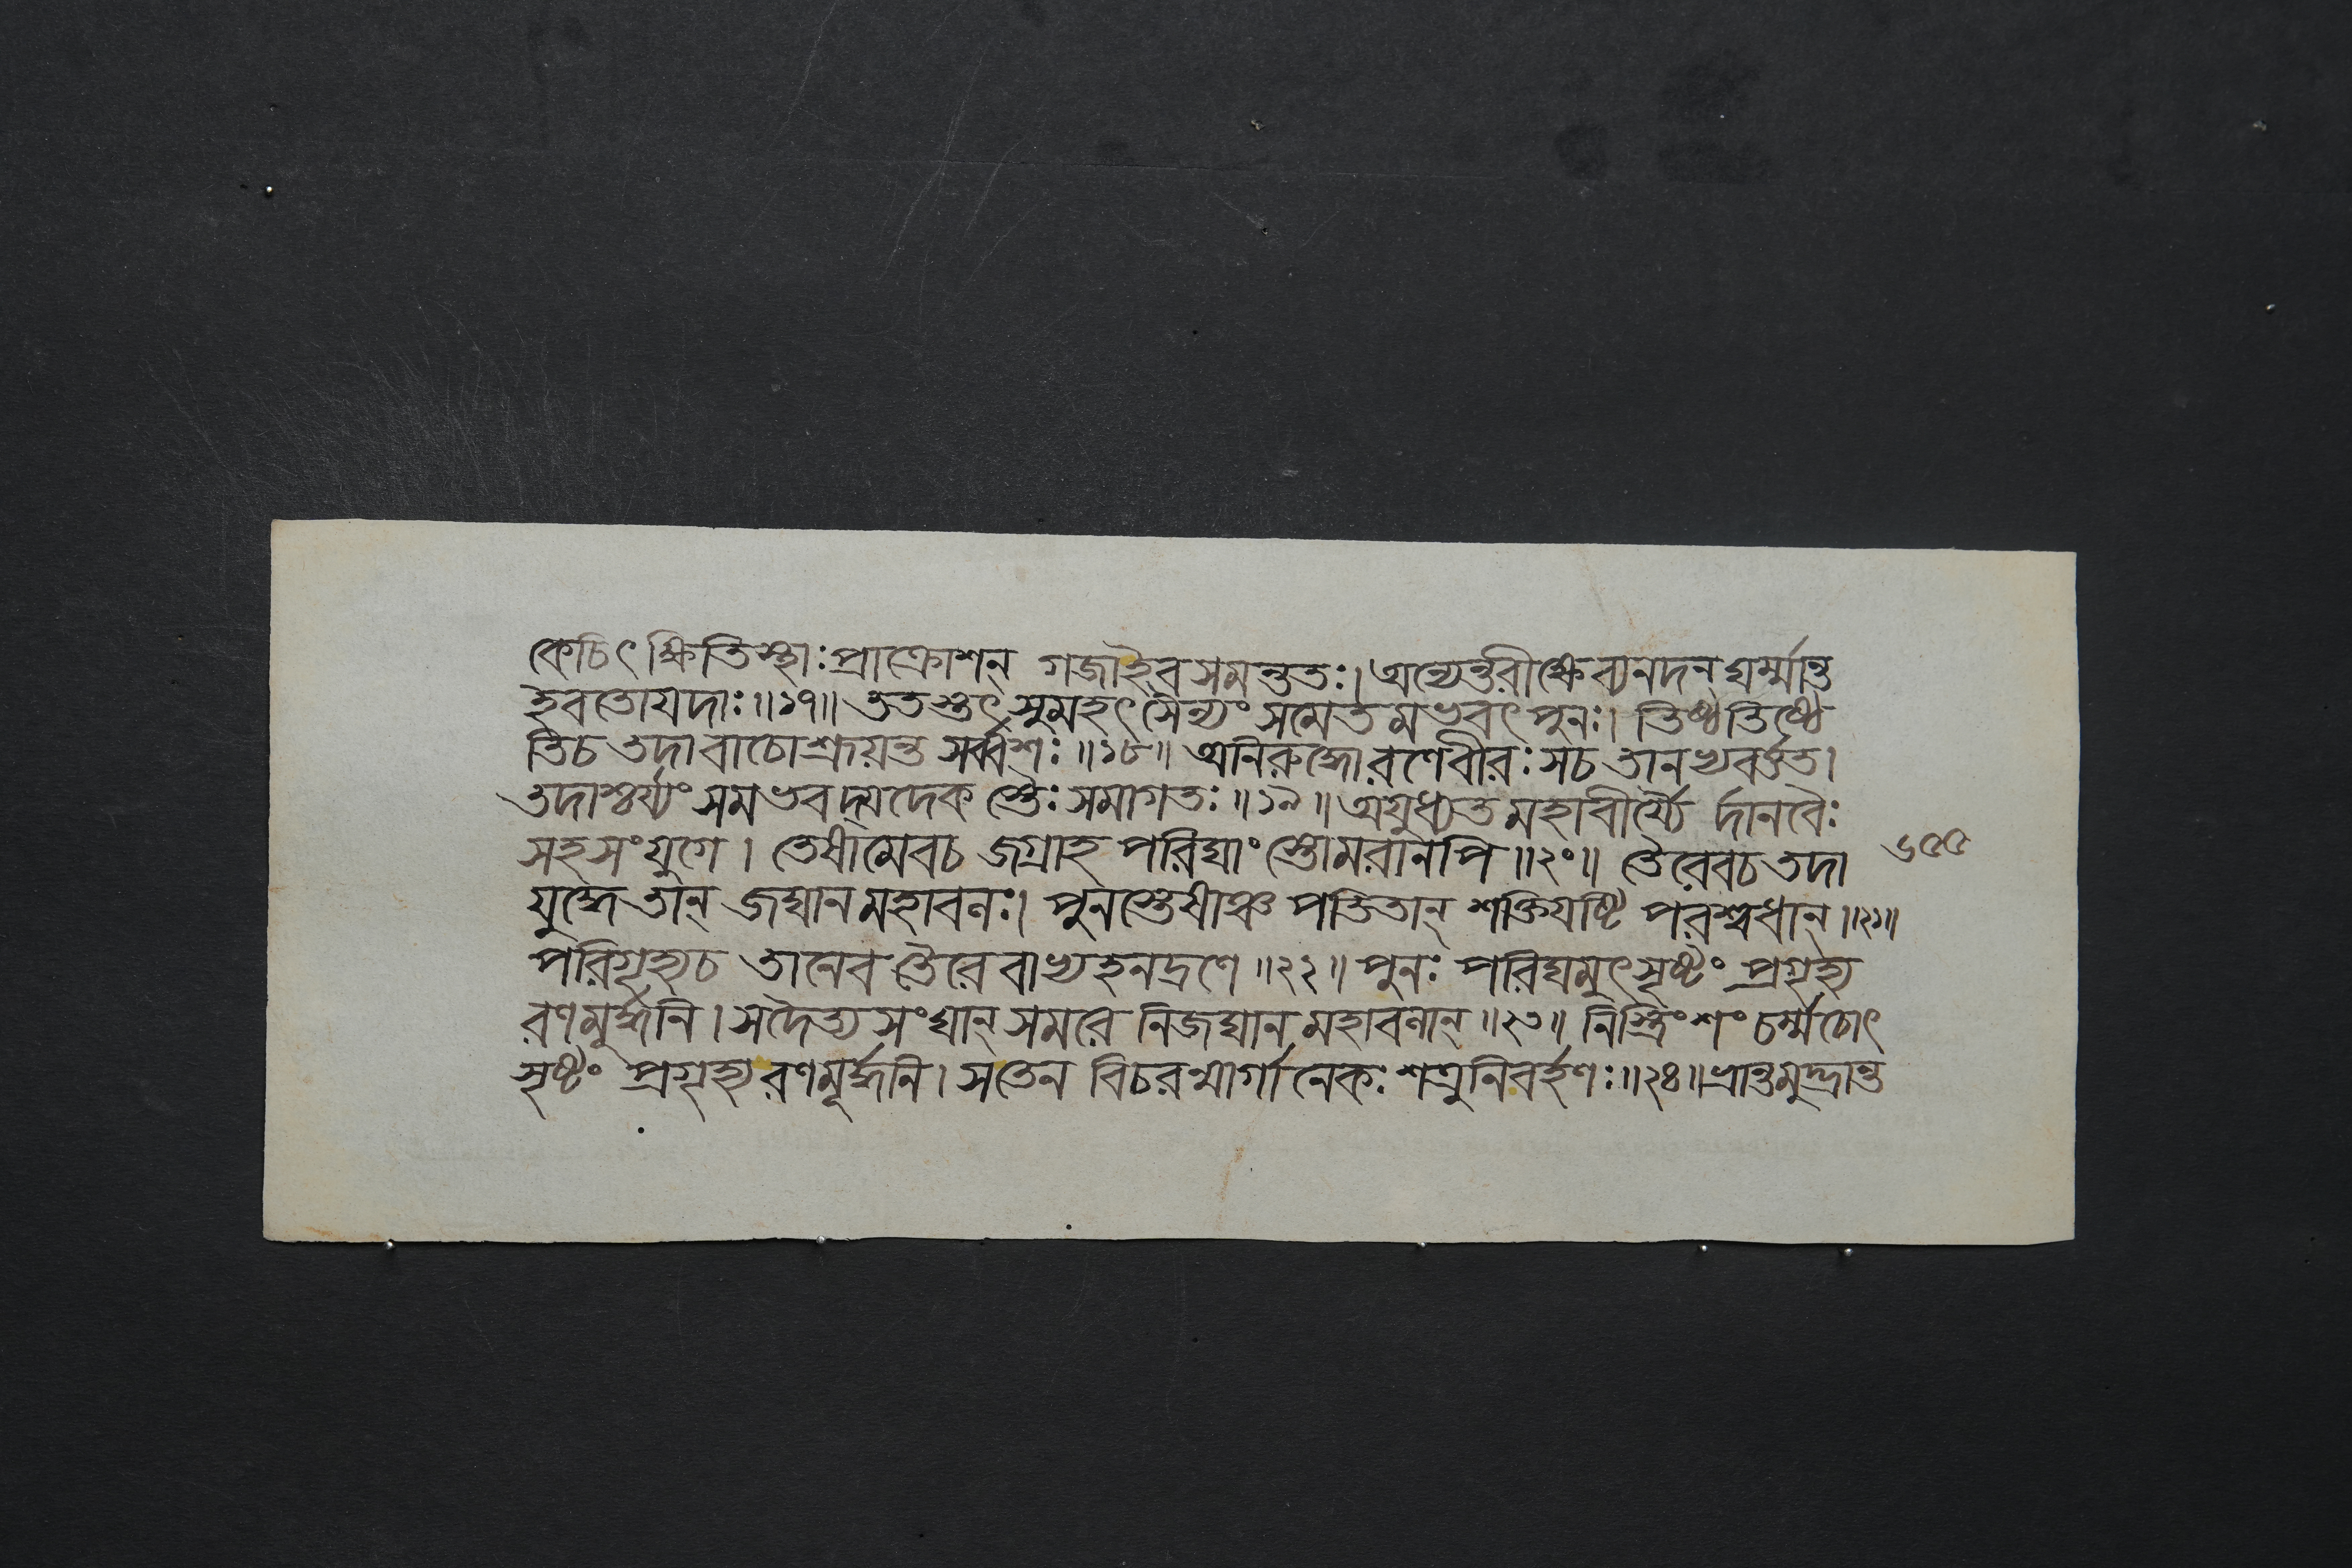 কেচিৎ ক্ষিতিস্থাঃ প্রাক্রোশন্ গজাইব সমন্ততঃ। অন্যেন্তরীক্ষে ব্যনদন ঘর্ম্মান্ত
ইবতোযদাঃ॥১৭॥ ততস্তৎ সুমহৎ সৈন্যং সমেতমভবৎ পুনঃ। তিষ্ঠতিষ্ঠে
তিচ তদা বাচোশ্রূয়ন্ত সর্ব্বশঃ॥১৮॥ অনিরুদ্ধো রণেবীরঃ সচ তানভ্যবর্ত্তত।
তদাশ্চর্য্যং সমভবদ্যদেক স্তৈঃ সমাগতঃ॥১৯॥ অযুধ্যত মহাবীর্য্যৈ র্দানবৈঃ
সহসংযুগে। তেষামেবচ জগ্রাহ পরিঘাং স্তোমরানপি॥২০॥ তৈরেবচ তদা
যুদ্ধে তান্ জঘান মহাবলঃ। পুনস্তেষাঞ্চ পতিতান্ শক্তিযষ্টি পরশ্বধান্॥২১॥
পরিগৃহ্যচ তানেব তৈরে বাভ্যহনদ্রণে॥২২॥ পুনঃ পরিঘমুৎসৃষ্টং প্রগৃহ্য
রণমূর্দ্ধনি। সদৈত্য সংঘান্ সমরে নিজঘান মহাবলান্॥২৩॥ নিস্ত্রিংশং চর্ম্মচোৎ
সৃষ্টং প্রগৃহ্য রণমূর্দ্ধনি। সতেন বিচরন্মার্গানেকঃ শত্রুনিবর্হণঃ॥২৪॥ ভ্রান্তমুদ্ভ্রান্ত
৬৫৫